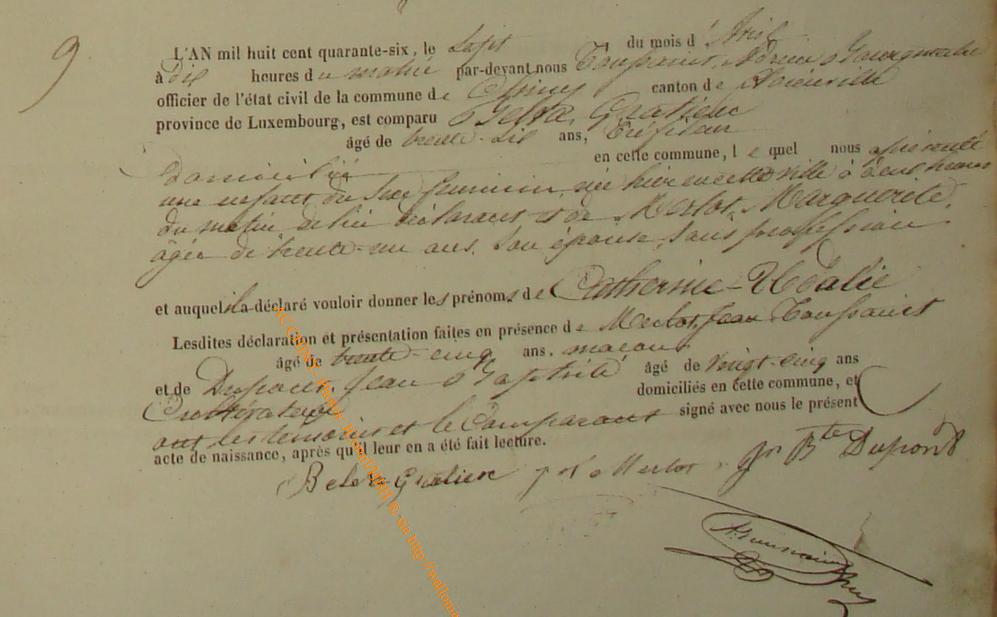 9
L'AN mil huit cent quarante-six, le Sept du mois d'Avril
à dix heures du matin par-devant nous Toussaint, Adrien, Bourgmestre
officier de l'état civil de la commune de Chiny canton de
province de Luxembourg, est comparu Gratien
âgé de trente-six ans,
domicilié en cette commune, lequel nous a présenté
une enfant du sexe féminin née hier en cette ville à deux heures
du matin de lui déclarant et de Merlot, Marguerite,
âgée de trente-un ans, son épouse, sans profession
et auquel il a déclaré vouloir donner les prénoms de Catherine-
Lesdites déclaration et présentation faites en présence de Merlot, Jean Toussaint
âgé de trente-cinq ans, maçon
et de Dupont, Jean Baptiste âgé de vingt-cinq ans
Cultivateur domiciliés en cette commune, et
ont les témoins et le Comparant signé avec nous le présent
acte de naissance, après qu'il leur en a été fait lecture.
Gratien Merlot Jn Bte Dupont